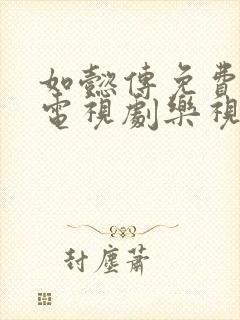 如懿傳免費
電視劇樂視
封塵蕭